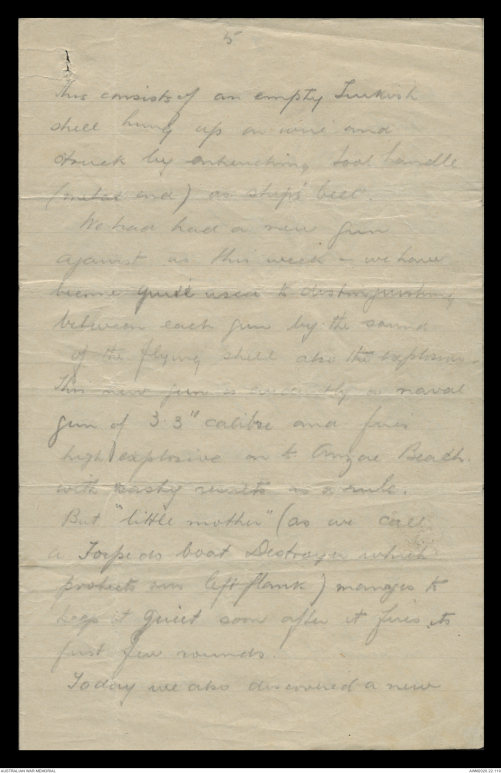 5
This consists of an empty Turkish
shell hung up on wire and
struck by entrenching tool handle
(metal end) as ships' bell.
We had had a new gun
against us this week – we have
become quite used to distinguishing
between each gun by the sound
of the flying shell also the explosion.
This new gun is evidently a naval
gun of 3.3" calibre and fires
high explosive on to Anzac Beach
with nasty results as a rule.
But "little mother" (as we call
a Torpedo boat Destroyer which
protects our left flank) manages to
keep it quiet soon after it fires its
first few rounds.
Today we also discovered a new
AUSTRALIAN WAR MEMORIAL